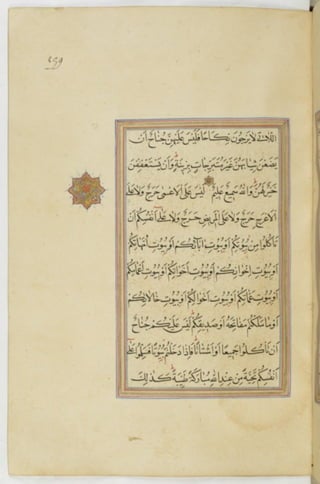 اللاتي لا يرجون نكاحا فليس عليهن جناح ان
يضعن ثيابهن غير متبرجات بزينة وان يستعففن
خير لهن والله سميع عليم ليس على الاعمى حرج ولا على
الاعرج حرج ولا على المريض حرج ولا على انفسكم ان
تاكلوا من بيوتكم او بيوت ابائكم او بيوت امهاتكم
او بيوت اخوانكم او بيوت اخواتكم او بيوت اعمامكم
او بيوت عماتكم او بيوت اخوالكم او بيوت خالاتكم
او ما ملكتم مفاتحه او صديقكم ليس عليكم جناح
ان تاكلوا جميعا او اشتاتا فاذا دخلتم بيوتا فسلموا على
انفسكم تحية من عند الله مباركة طيبة كذلك